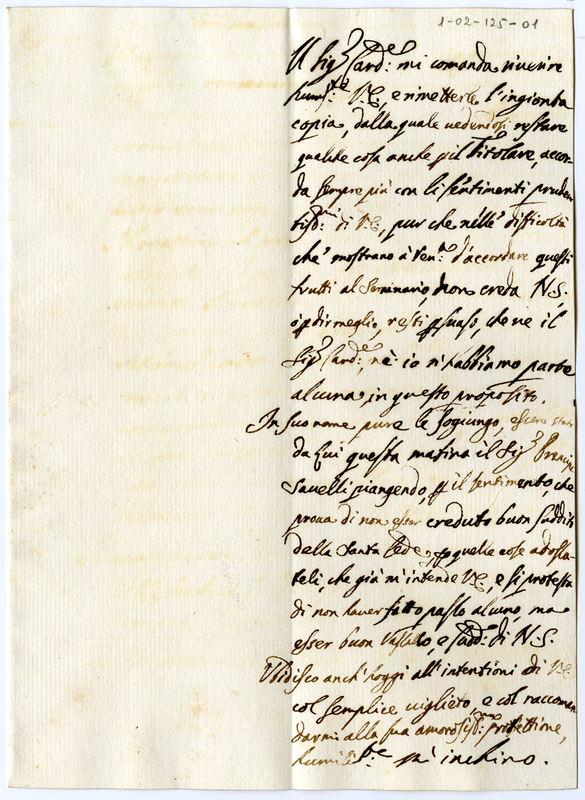 1-02-125-01
Il Sig.r Card.le mi comanda riverire
hum.te V.E., e rimetterle l'ingionta
copia, dalla quale vedendosi restare
qualche cosa anche p il Titolare, accor-
da sempre più con li sentimenti pruden
tiss.mi di V.E., pur che nelle difficoltà
che mostrano à Ven.a d'accordare questi
frutti al Seminario, non creda N.S.
ò p dir meglio, resti psuaso, che ne il
Sig.r Card.le, nè io n'habbiamo parte
alcuna in questo proposito.
In suo nome pure le sogiungo, essere stato
da Lui questa matina il Sig.r Prencipe
Savelli piangendo, p il sentimento, che
prova di non esser creduto buon suddito
della Santa Sede, p quelle cose adossa-
teli, che già m'intende V.E., e si protesta
di non haver fatto passo alcuno, ma
esser buon Vassallo, e sudd.o di N.S.
Ubidisco anch'hoggi all'intentioni di V.E.
col semplice viglieto, e col raccoman
darmi alla sua amorosiss.ma protettione,
humili.te m'inchino.